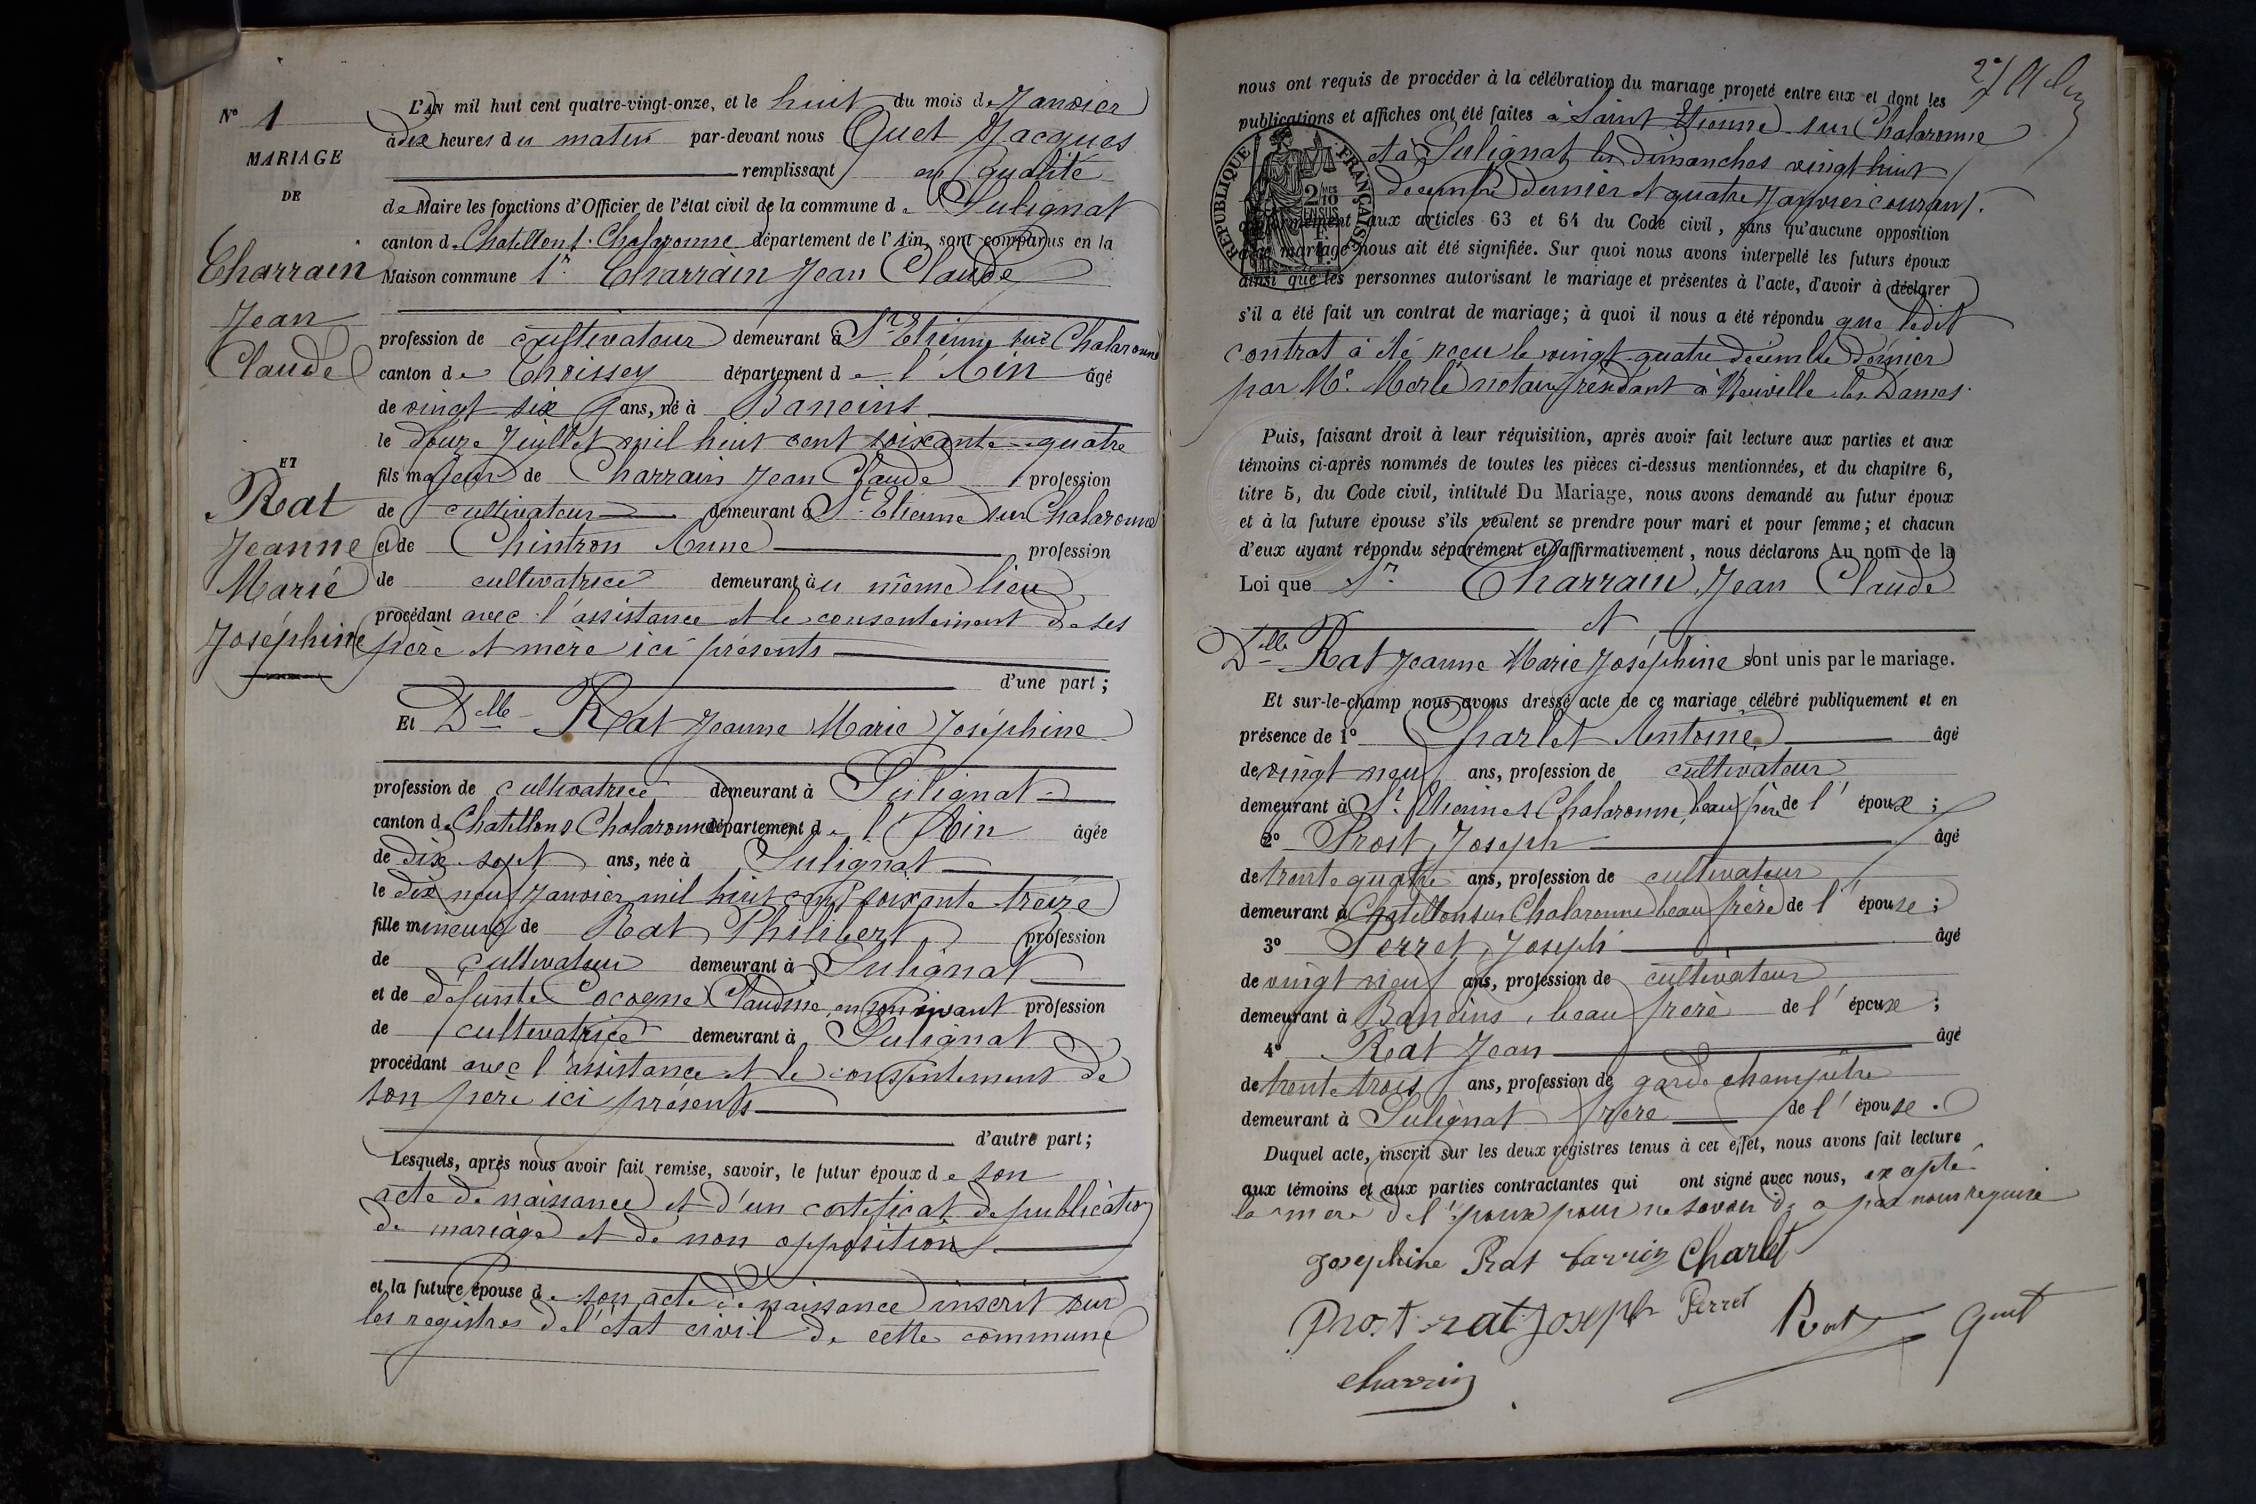 N° 1
MARIAGE
DE
Charrain
Jean
Claude
ET
Rat
Jeanne
Marie
Joséphine
L'AN mil huit cent quatre-vingt-onze, et le huit du mois de Janvier
à dix heures du matin par-devant nous Quet Jacques
remplissant en qualité
de Maire les fonctions d'Officier de l'état civil de la commune de Sulignat
canton de Chatillon s. Chalaronne département de l'Ain, sont comparus en la
Maison commune Sr Charrain Jean Claude
profession de cultivateur demeurant à St Etienne sur Chalaronne
canton de Thoissey département de l'Ain âgé
de vingt six ans, né à Baneins
le douze Juillet mil huit cent soixante quatre
fils majeur de Charrain Jean Claude profession
de cultivateur demeurant à St Etienne sur Chalaronne
et de Chintron Anne profession
de cultivatrice demeurant au même lieu
procédant avec l'assistance et le consentement de ses
père et mère ici présents
d'une part ;
Et Dlle Rat Jeanne Marie Joséphine
profession de cultivatrice demeurant à Sulignat
canton de Chatillon s Chalaronne département de l'Ain âgée
de dix sept ans, née à Sulignat
le dix neuf Janvier mil huit cent soixante treize
fille mineure de Rat Philibert profession
de cultivateur demeurant à Sulignat
et de défunte Cocogne Claudine, en son vivant profession
de cultivatrice demeurant à Sulignat
procédant avec l'assistance et le consentement de
son père ici présents
d'autre part ;
Lesquels, après nous avoir fait remise, savoir, le futur époux de son
acte de naissance et d'un certificat de publication
de mariage et de non opposition.
et la future épouse de son acte de naissance inscrit sur
les registres de l'état civil de cette commune
nous ont requis de procéder à la célébration du mariage projeté entre eux et dont les
publications et affiches ont été faites à Saint Etienne sur Chalaronne
et à Sulignat les dimanches vingt huit
décembre dernier et quatre Janvier courant.
RÉPUBLIQUE FRANÇAISE
conformément aux articles 63 et 64 du Code civil, sans qu'aucune opposition
audit mariage nous ait été signifiée. Sur quoi nous avons interpellé les futurs époux
ainsi que les personnes autorisant le mariage et présentes à l'acte, d'avoir à déclarer
s'il a été fait un contrat de mariage; à quoi il nous a été répondu que ledit
contrat à été reçu le vingt-quatre décembre dernier
par Me Morlé notaire résidant à Neuville les Dames.
Puis, faisant droit à leur réquisition, après avoir fait lecture aux parties et aux
témoins ci-après nommés de toutes les pièces ci-dessus mentionnées, et du chapitre 6,
titre 5, du Code civil, intitulé Du Mariage, nous avons demandé au futur époux
et à la future épouse s'ils veulent se prendre pour mari et pour femme; et chacun
d'eux ayant répondu séparément et affirmativement, nous déclarons Au nom de la
Loi que Sr Charrain Jean Claude
et
Dlle Rat Jeanne Marie Joséphine sont unis par le mariage.
Et sur-le-champ nous avons dressé acte de ce mariage célébré publiquement et en
présence de 1° Charlet Antoine âgé
de vingt neuf ans, profession de cultivateur
demeurant à St Etienne s Chalaronne, beau frère de l'époux ;
2° Prost Joseph âgé
de trente quatre ans, profession de cultivateur
demeurant à Chatillon sur Chalaronne beau frère de l'épouse ;
3° Perret Joseph âgé
de vingt neuf ans, profession de cultivateur
demeurant à Baneins, beau frère de l'époux ;
4° Rat Jean âgé
de trente trois ans, profession de garde champêtre
demeurant à Sulignat frère de l'épouse.
Duquel acte, inscrit sur les deux registres tenus à cet effet, nous avons fait lecture
aux témoins et aux parties contractantes qui ont signé avec nous, excepté
la mère de l'époux pour ne savoir de ce par nous requise
Josephine Rat Carrin Charlet
Prost rat Joseph Perret Rat Quet
charrin